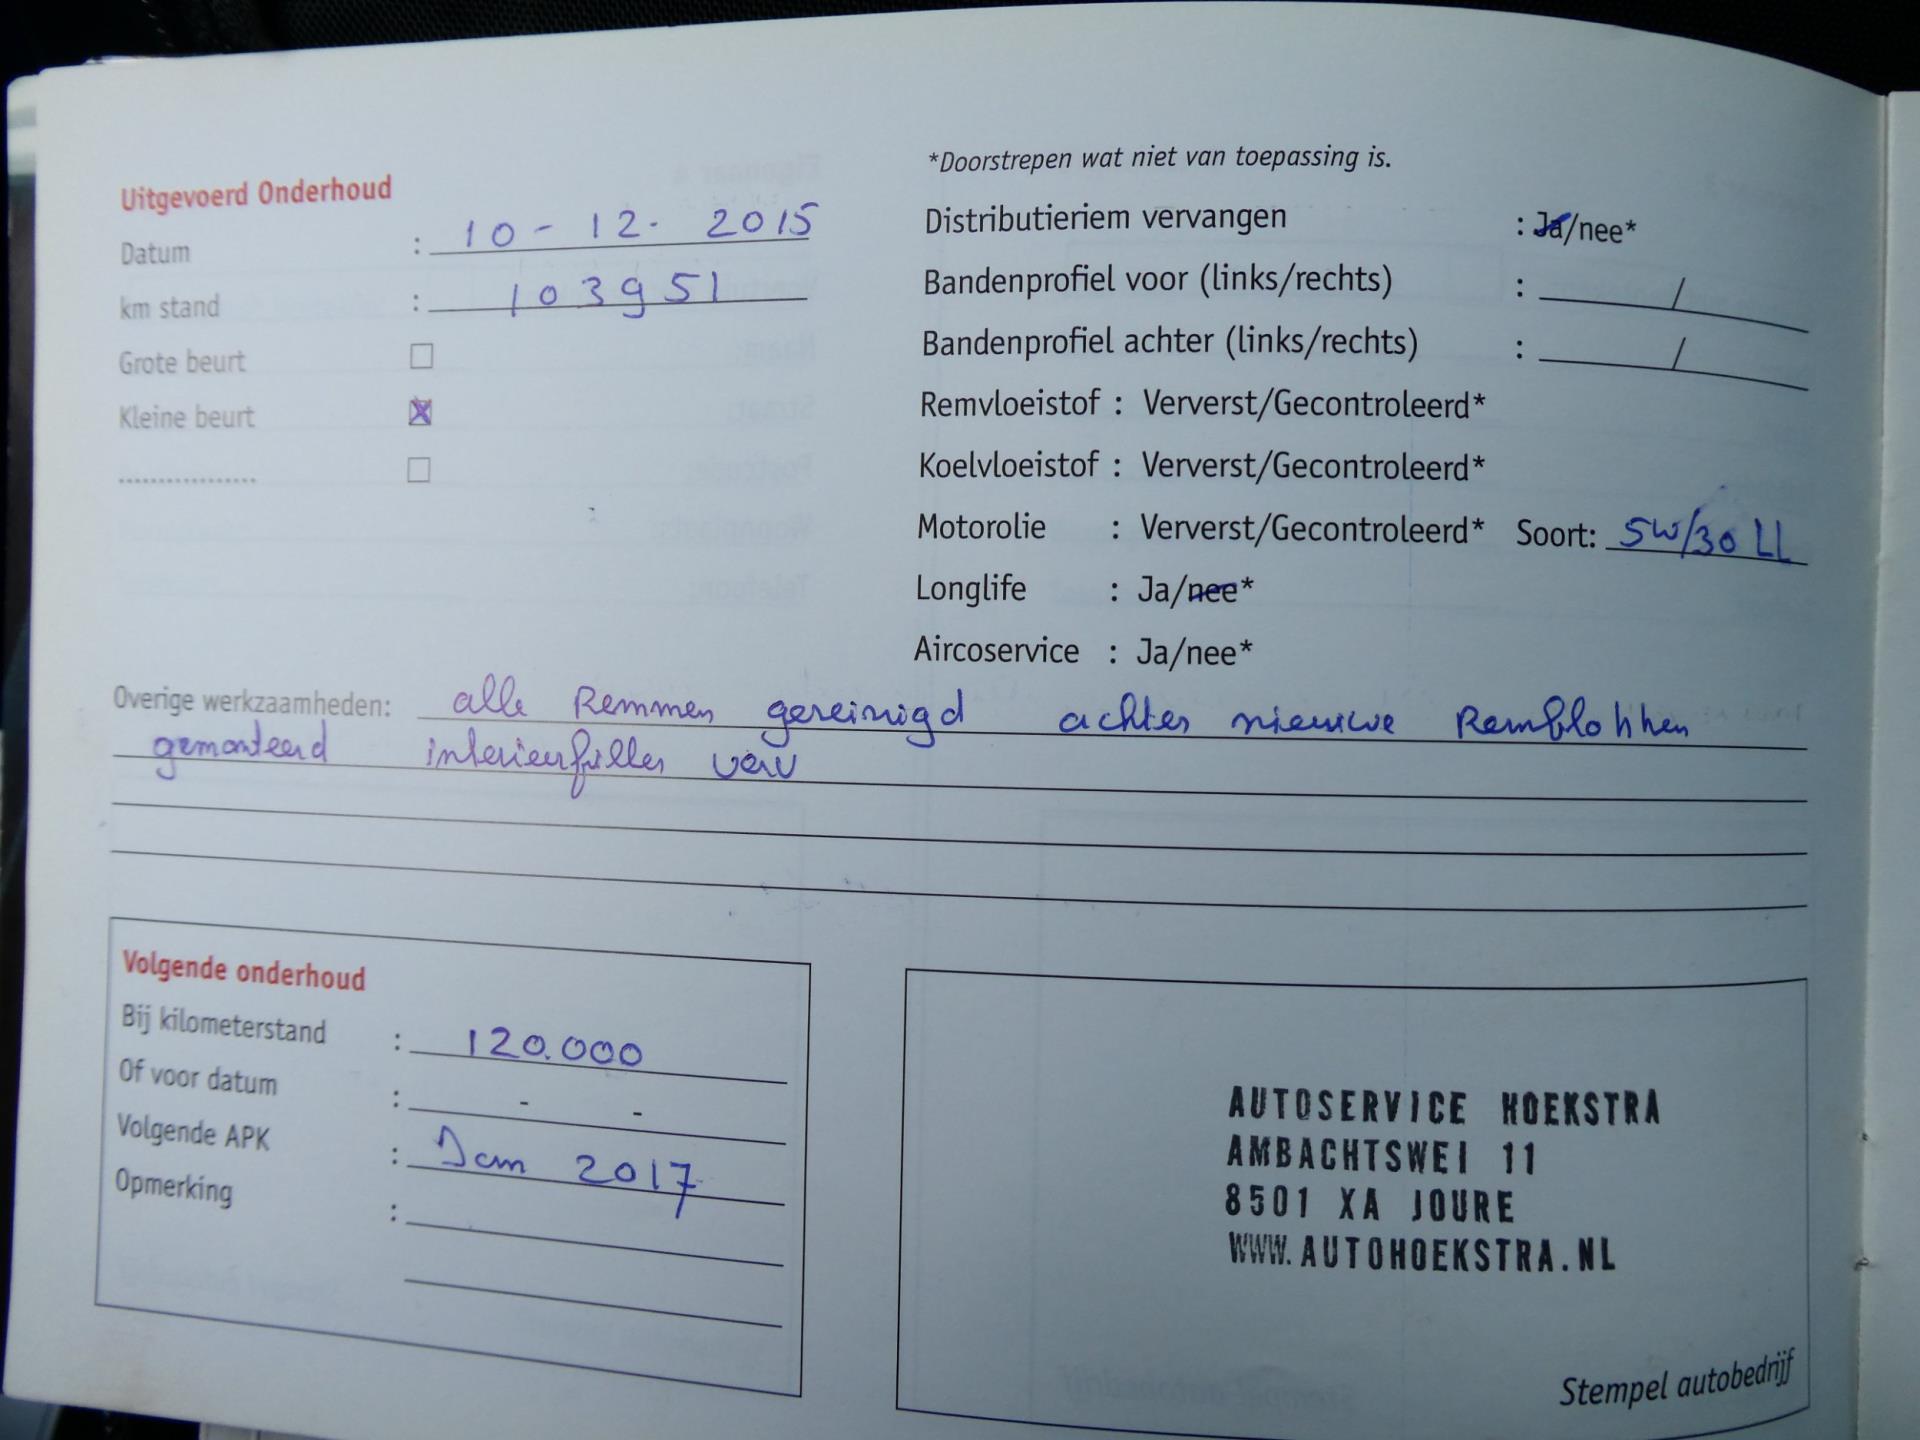 *Doorstrepen wat niet van toepassing is.
Uitgevoerd Onderhoud
Datum : 10 - 12 - 2015
km stand : 103951
Grote beurt
Kleine beurt X
................
Distributieriem vervangen : Ja/nee*
Bandenprofiel voor (links/rechts) : /
Bandenprofiel achter (links/rechts) : /
Remvloeistof : Ververst/Gecontroleerd*
Koelvloeistof : Ververst/Gecontroleerd*
Motorolie : Ververst/Gecontroleerd* Soort: 5W/30 LL
Longlife : Ja/nee*
Aircoservice : Ja/nee*
Overige werkzaamheden: alle Remmen gereinigd achter nieuwe Remblokken
gemonteerd interieurfilter verv
Volgende onderhoud
Bij kilometerstand : 120.000
Of voor datum : - -
Volgende APK : Jan 2017
Opmerking :
AUTOSERVICE HOEKSTRA
AMBACHTSWEI 11
8501 XA JOURE
WWW.AUTOHOEKSTRA.NL
Stempel autobedrijf